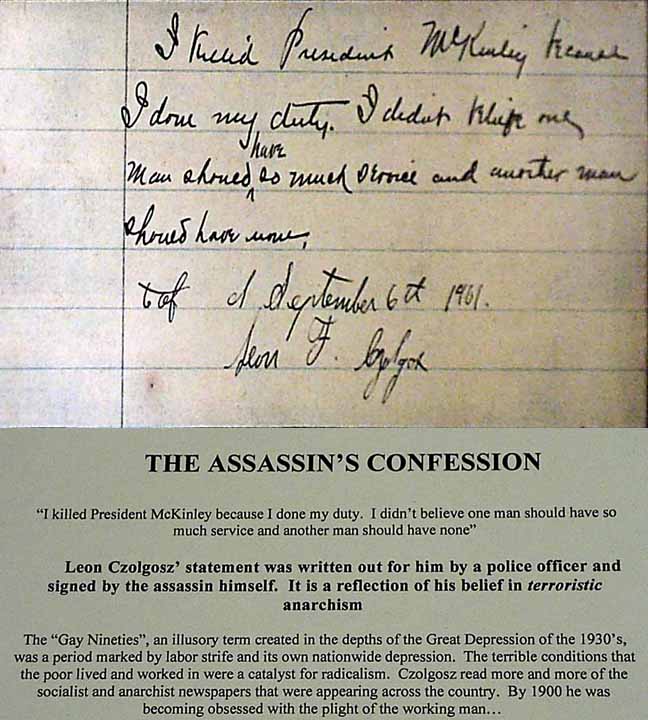 I killed President McKinley because
I done my duty. I didn't believe one
have
man should so much service and another man
should have none,
September 6th 1901.
Leon F.
THE ASSASSIN'S CONFESSION
“I killed President McKinley because I done my duty.  I didn't believe one man should have so
much service and another man should have none”
Leon Czolgosz' statement was written out for him by a police officer and
signed by the assassin himself.  It is a reflection of his belief in terroristic
anarchism
The “Gay Nineties”, an illusory term created in the depths of the Great Depression of the 1930's,
was a period marked by labor strife and its own nationwide depression.  The terrible conditions that
the poor lived and worked in were a catalyst for radicalism.  Czolgosz read more and more of the
socialist and anarchist newspapers that were appearing across the country.  By 1900 he was
becoming obsessed with the plight of the working man…